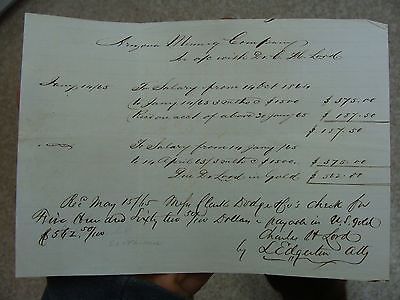 Arizona Mining Company
In a/c with Dr C. H. Lord
Jany 14/65 To Salary from 14 Oct 1864
to Jany 14/65 3 mths @ $1500 $375.00
account of above 30 Jany 65 $187.50
$187.50
To Salary from 14 Jany /65
to 14 April 65 3 mths @ $1500. $375.00
Due Dr Lord in Gold $562.00
Rec May 15/65 Mess Dodge & Co's Check for
Five Hun and Sixty two 50/100 Dollars payable in U.S. Gold
$562.50/100 Charles H Lord
by L Edgerton Atty